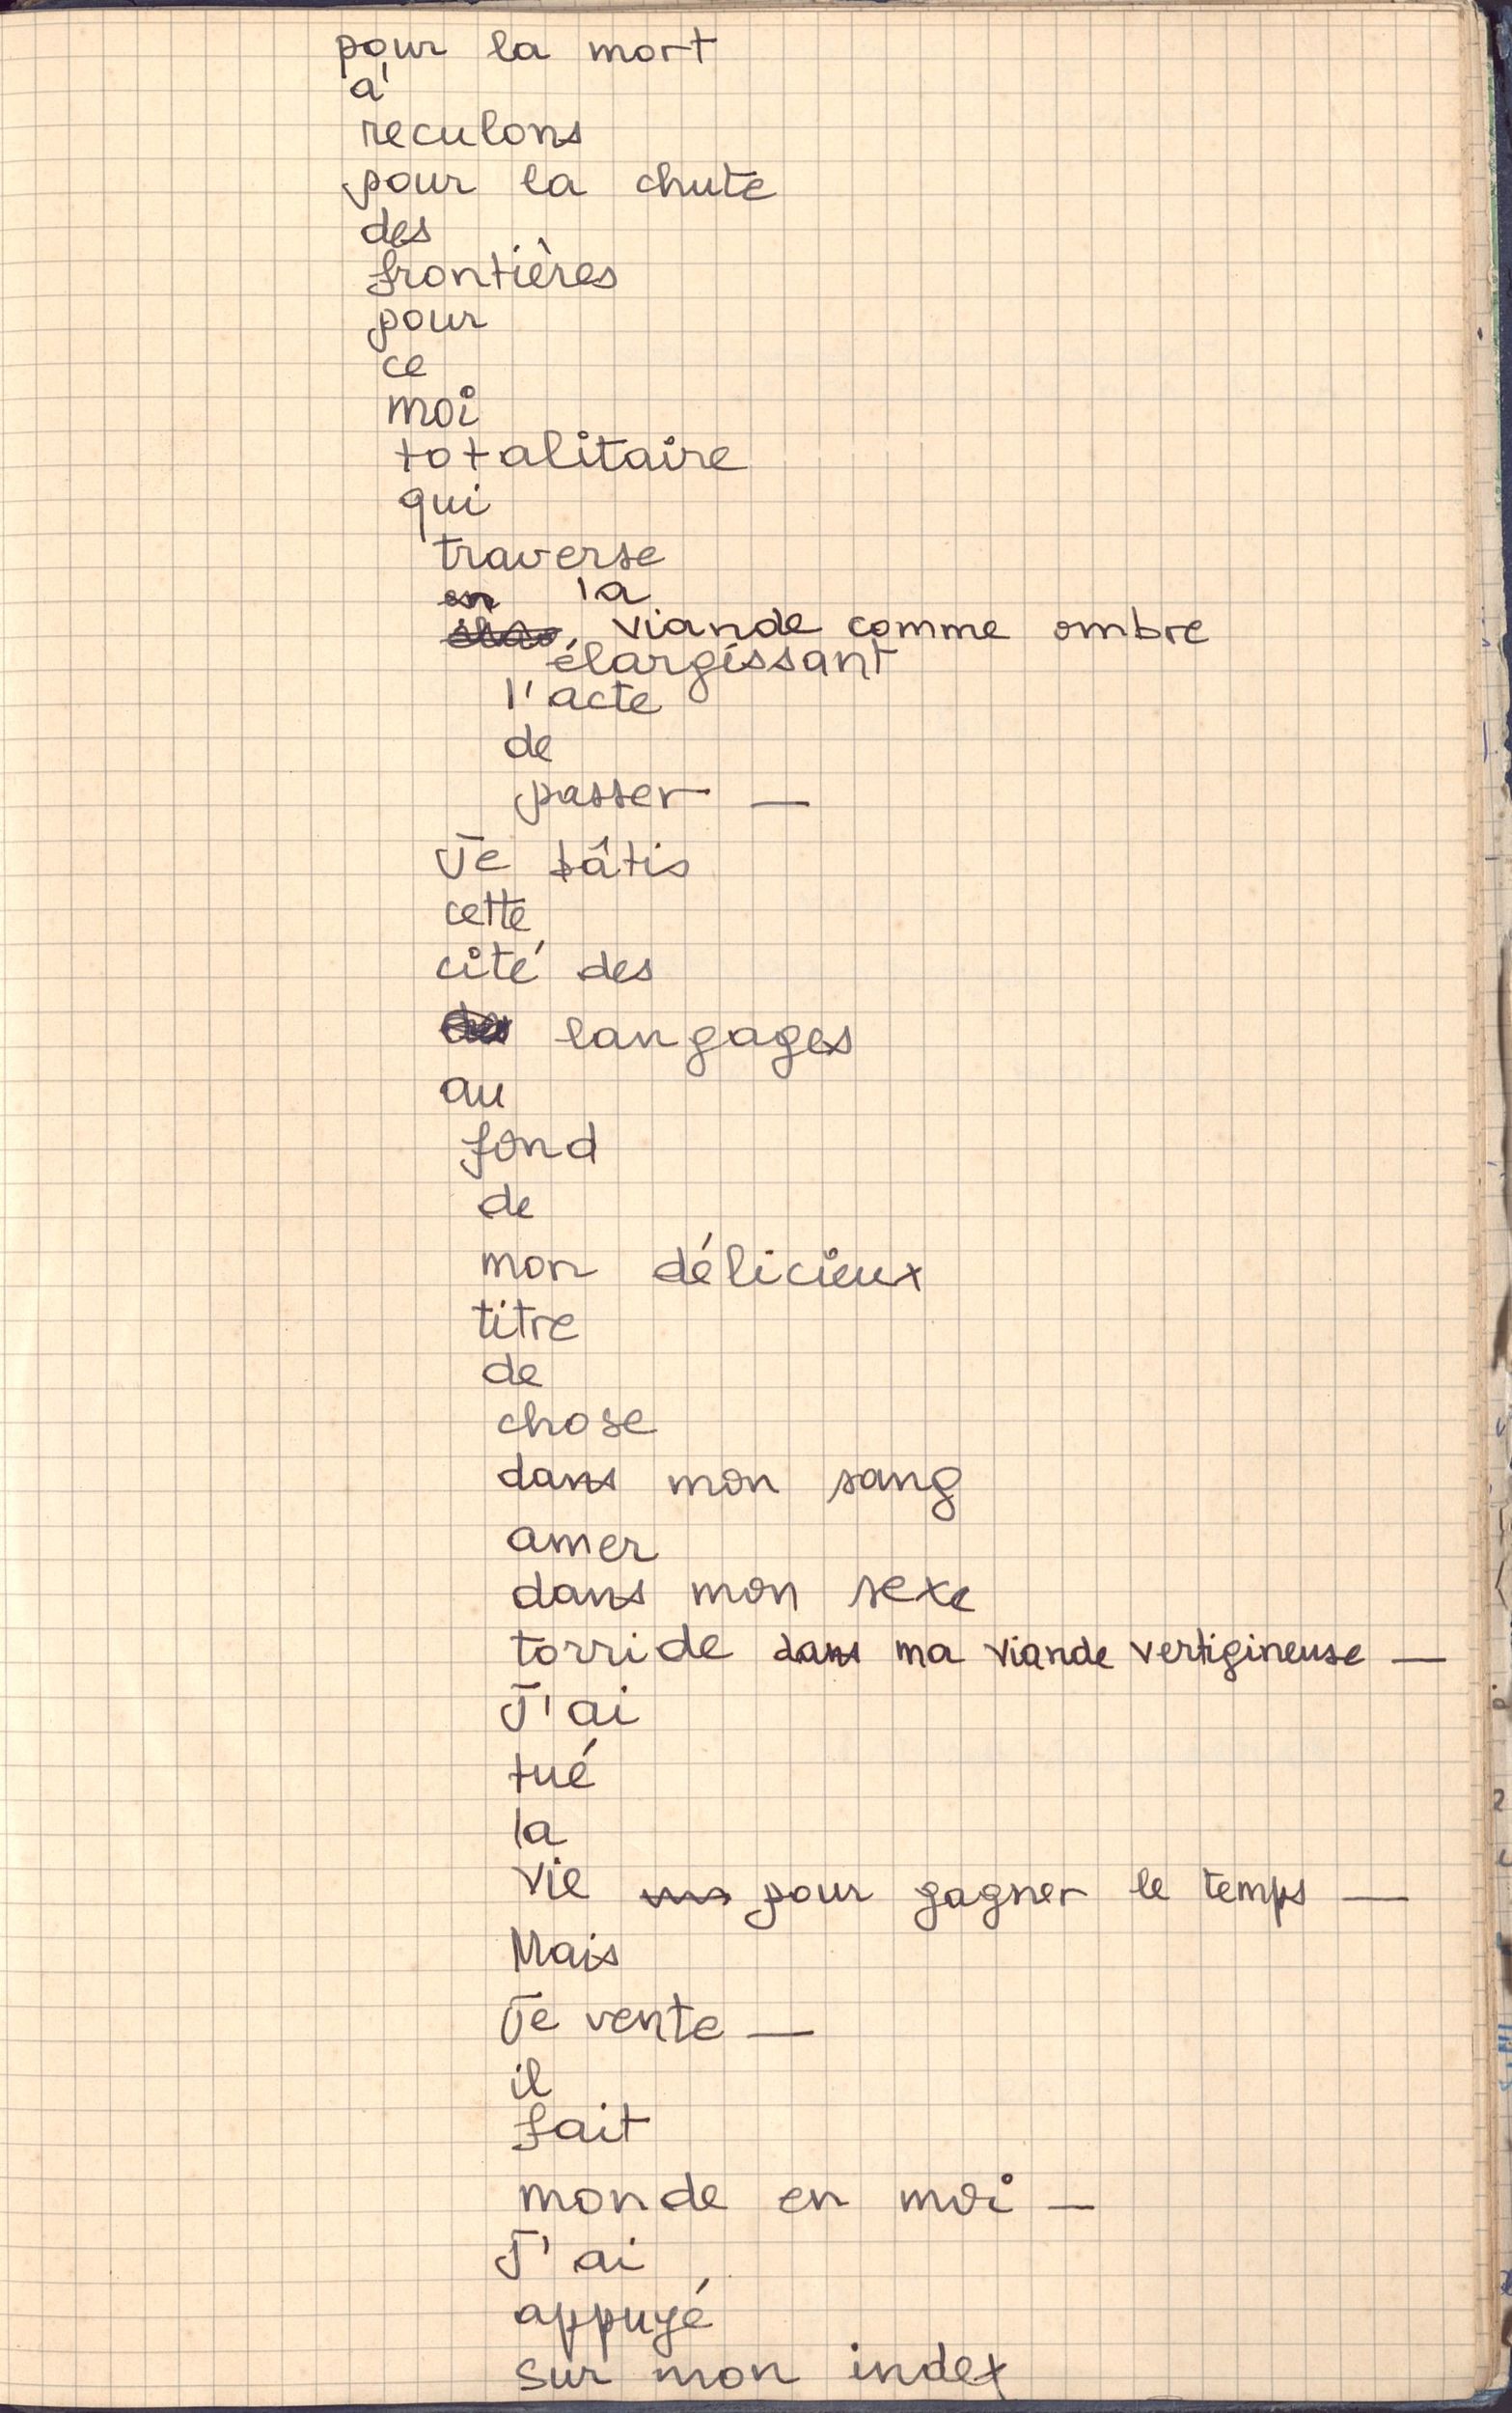 pour la mort
à
reculons
pour la chute
des
frontières
pour
ce
moi
totalitaire
qui
traverse
en la
viande comme ombre
élargissant
l'acte
de
passer —
Je bâtis
cette
cité des
des langages
au
fond
de
mon délicieux
titre
de
chose
dans mon sang
amer
dans mon sexe
torride dans ma viande vertigineuse —
J'ai
tué
la
vie pour gagner le temps —
Mais
Je vente —
il
fait
monde en moi —
J'ai
appuyé
sur mon index